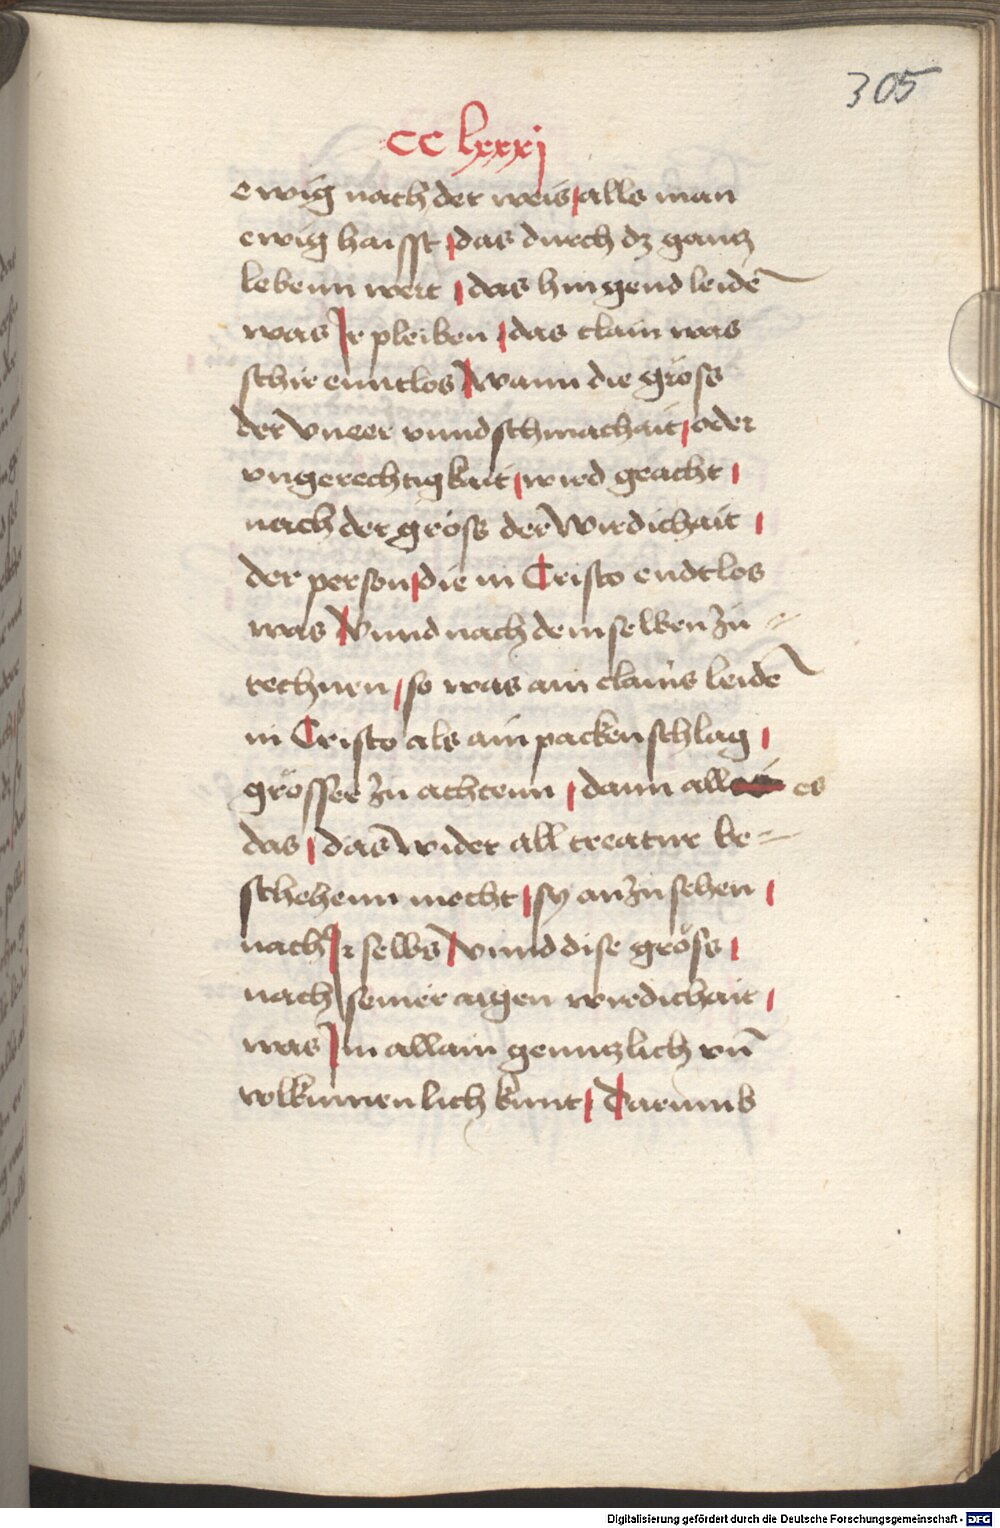 305
CC lxxxj
ewig nach der weis / alls man
ewig haisst / das durch dz gantz
lebenn wert / das hingend leidē
was Ir pleiben / das clain was
schir enntlos Wann die gröss
der vneer vnnd schmachait / oder
vngerechtigkait / wird geacht /
nach der gröss der Wirdichait /
der person / die in Cristo endtlos
was Vnnd nach demselben zu
rechnen / so was ain clains leidē
in Cristo als ain packenschlag /
grösser zu achtenn / dann all es
das / das wider all creatur be=
schehenn mocht / sy anzusehen /
nach Ir selbs Vnnd dise gröss /
nach seiner aigen wirdichait /
was In allain genntzlich vn̄
volkumenlich kunt / Darumb
Digitalisierung gefördert durch die Deutsche Forschungsgemeinschaft - DFG